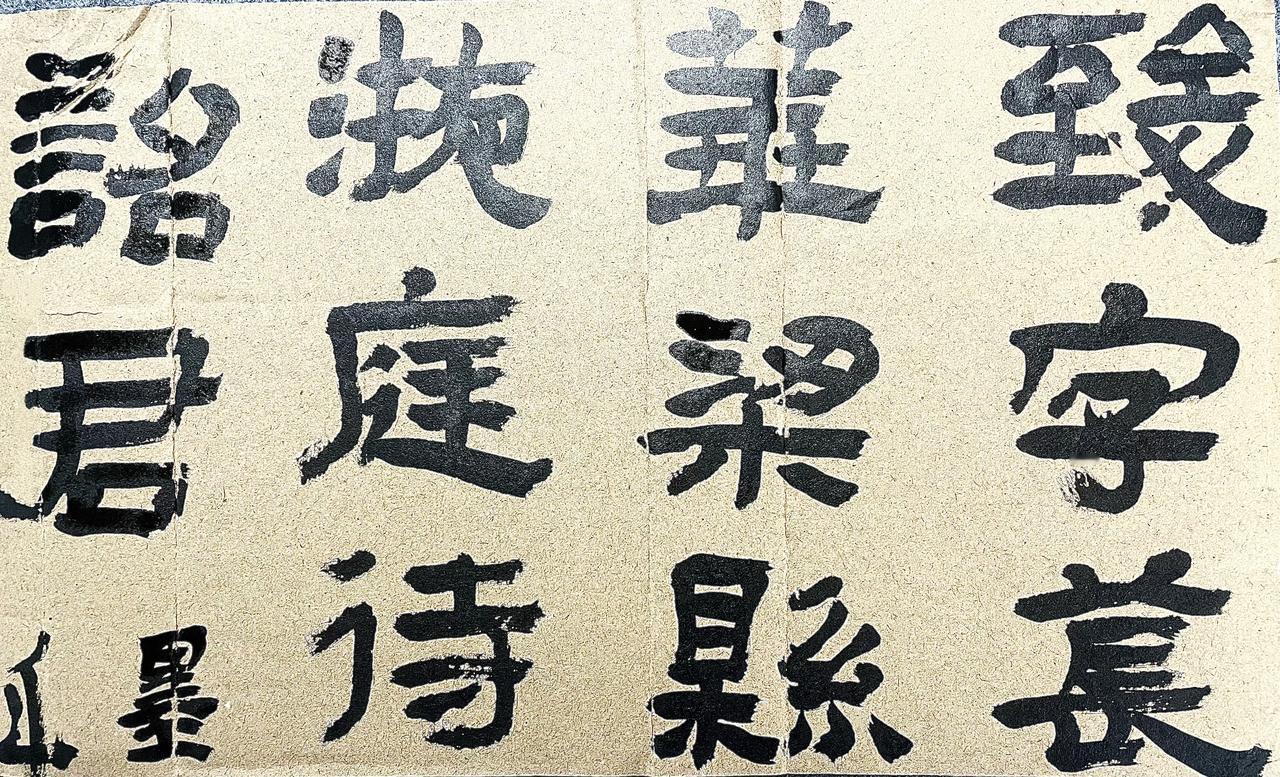 致字萇
華梁縣
掖庭待
詔君
墨